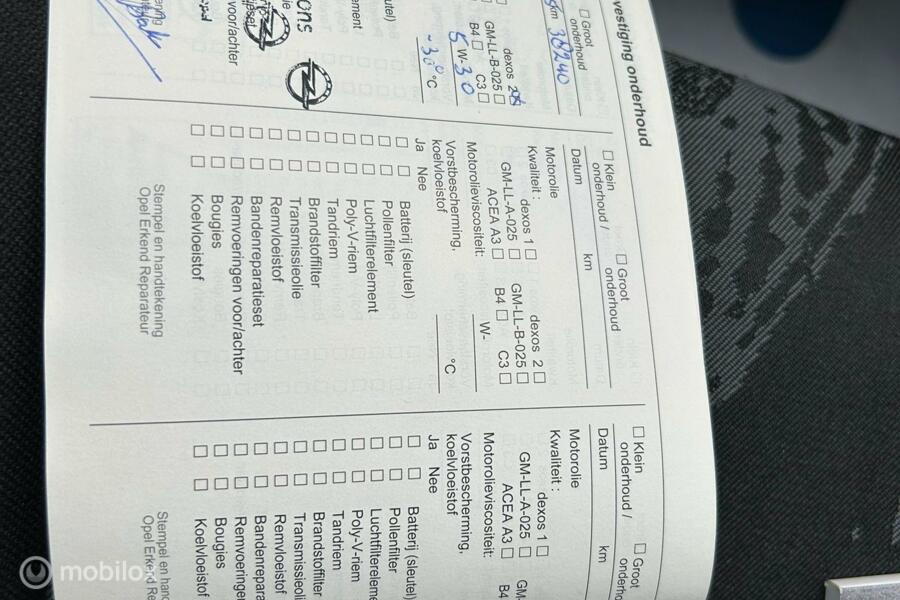 vestiging onderhoud
Groot
onderhoud
km 38240
dexos 2
GM-LL-B-025
B4 C3
5 W-30
-30 °C
voor/achter
Klein
onderhoud /
Groot
onderhoud
Datum km
Motorolie
Kwaliteit : dexos 1 dexos 2
GM-LL-A-025 GM-LL-B-025
ACEA A3 B4 C3
Motorolieviscositeit: W-
Vorstbescherming,
koelvloeistof °C
Ja Nee
Batterij (sleutel)
Pollenfilter
Luchtfilterelement
Poly-V-riem
Tandriem
Brandstoffilter
Transmissieolie
Remvloeistof
Bandenreparatieset
Remvoeringen voor/achter
Bougies
Koelvloeistof
Stempel en handtekening
Opel Erkend Reparateur
Klein
onderhoud /
Groot
Datum km
Motorolie
Kwaliteit : dexos 1
GM-LL-A-025
ACEA A3 B4
Motorolieviscositeit:
Vorstbescherming,
koelvloeistof
Ja Nee
Batterij (sleutel)
Pollenfilter
Luchtfiltereleme
Poly-V-riem
Tandriem
Brandstoffilter
Transmissieoli
Remvloeistof
Bandenrepara
Remvoeringen
Bougies
Koelvloeistof
Stempel en hand
Opel Erkend Re